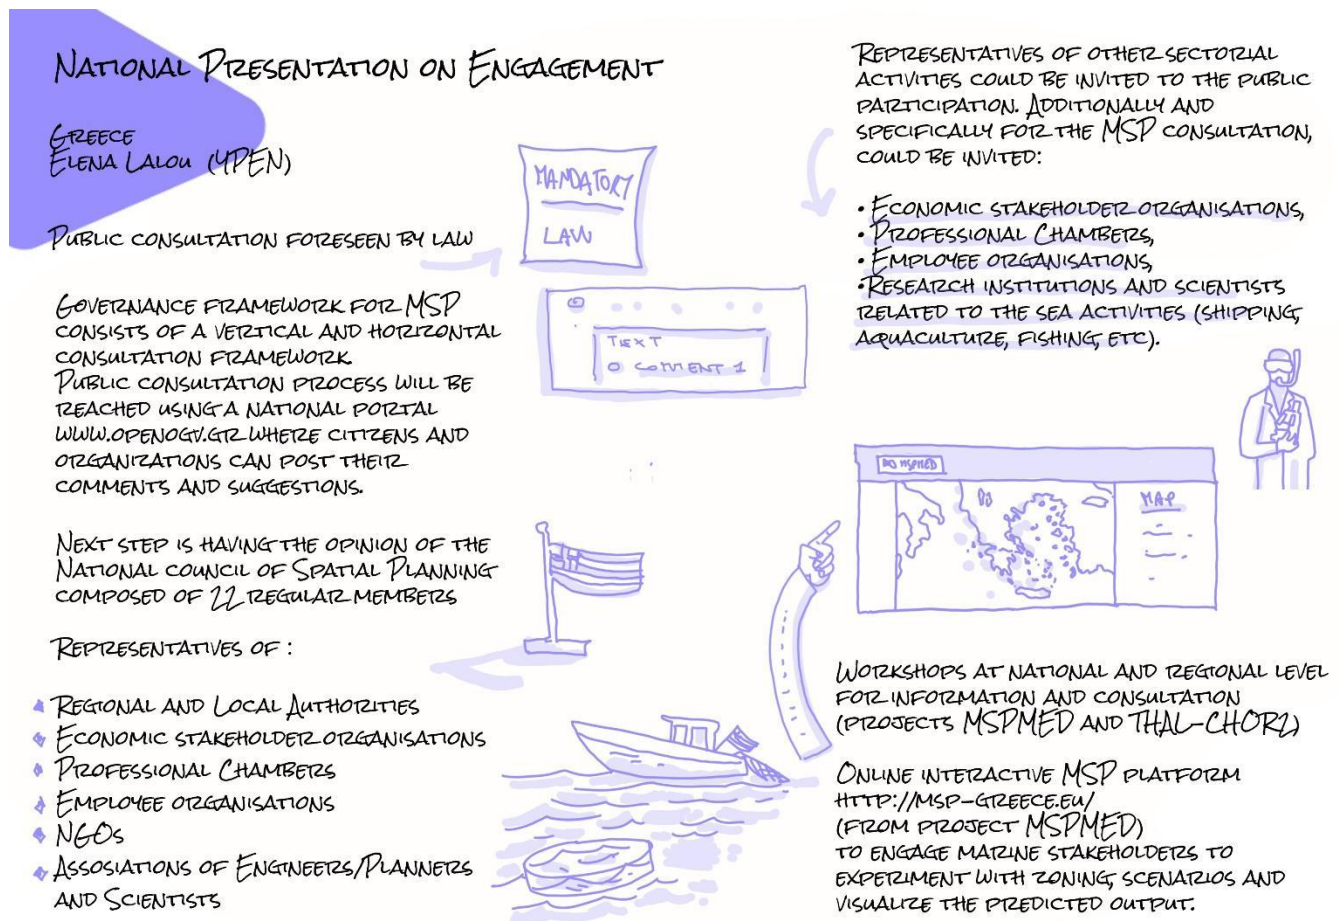 National Presentation on Engagement
Greece
Elena Lalou (YPEN)
Public consultation foreseen by law
MANDATORY
LAW
Governance framework for MSP
consists of a vertical and horizontal
consultation framework
Public consultation process will be
reached using a national portal
www.openogv.gr where citizens and
organizations can post their
comments and suggestions.
TEXT
O COMMENT 1
Next step is having the opinion of the
National council of Spatial Planning
composed of 22 regular members
Representatives of :
Regional and Local Authorities
Economic stakeholder organisations
Professional Chambers
Employee organisations
NGOs
Assosiations of Engineers/Planners
and Scientists
Representatives of other sectorial
activities could be invited to the public
participation. Additionally and
specifically for the MSP consultation,
could be invited:
• Economic stakeholder organisations,
• Professional Chambers,
• Employee organisations,
• Research institutions and scientists
related to the sea activities (shipping,
aquaculture, fishing, etc).
MAP
Workshops at national and regional level
for information and consultation
(projects MSPMED and THAL-CHOR2)
Online interactive MSP platform
http://msp-greece.eu/
(from project MSPMED)
to engage marine stakeholders to
experiment with zoning, scenarios and
visualize the predicted output.